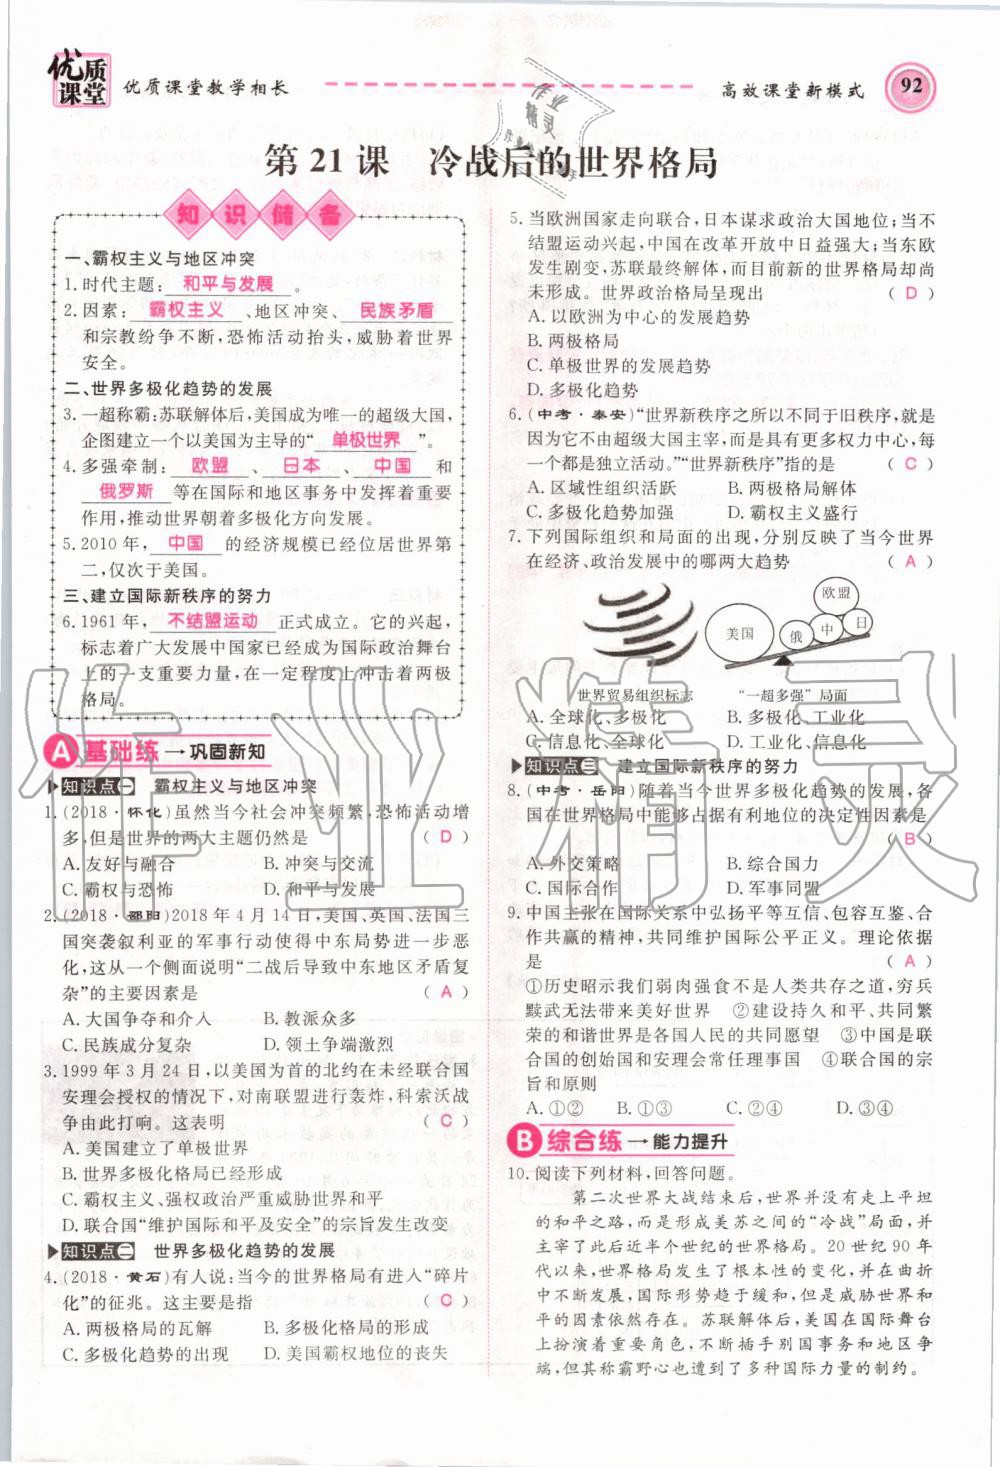 优质课堂
优质课堂教学相长
高效课堂新模式
92
第 21 课　冷战后的世界格局
知识储备
一、霸权主义与地区冲突
1. 时代主题：和平与发展。
2. 因素：霸权主义、地区冲突、民族矛盾
和宗教纷争不断，恐怖活动抬头，威胁着世界
安全。
二、世界多极化趋势的发展
3. 一超称霸：苏联解体后，美国成为唯一的超级大国，
企图建立一个以美国为主导的“单极世界”。
4. 多强牵制：欧盟、日本、中国和
俄罗斯等在国际和地区事务中发挥着重要
作用，推动世界朝着多极化方向发展。
5. 2010 年，中国的经济规模已经位居世界第
二，仅次于美国。
三、建立国际新秩序的努力
6. 1961 年，不结盟运动正式成立。它的兴起，
标志着广大发展中国家已经成为国际政治舞台
上的一支重要力量，在一定程度上冲击着两极
格局。
A 基础练→巩固新知
知识点一　霸权主义与地区冲突
1. (2018·怀化)虽然当今社会冲突频繁，恐怖活动增
多，但是世界的两大主题仍然是（ D ）
A. 友好与融合　B. 冲突与交流
C. 霸权与恐怖　D. 和平与发展
2. (2018·邵阳)2018 年 4 月 14 日，美国、英国、法国三
国突袭叙利亚的军事行动使得中东局势进一步恶
化，这从一个侧面说明“二战后导致中东地区矛盾复
杂”的主要因素是（ A ）
A. 大国争夺和介入　B. 教派众多
C. 民族成分复杂　D. 领土争端激烈
3. 1999 年 3 月 24 日，以美国为首的北约在未经联合国
安理会授权的情况下，对南联盟进行轰炸，科索沃战
争由此打响。这表明（ C ）
A. 美国建立了单极世界
B. 世界多极化格局已经形成
C. 霸权主义、强权政治严重威胁世界和平
D. 联合国“维护国际和平及安全”的宗旨发生改变
知识点二　世界多极化趋势的发展
4. (2018·黄石)有人说：当今的世界格局有进入“碎片
化”的征兆。这主要是指（ C ）
A. 两极格局的瓦解　B. 多极化格局的形成
C. 多极化趋势的出现　D. 美国霸权地位的丧失
5. 当欧洲国家走向联合，日本谋求政治大国地位；当不
结盟运动兴起，中国在改革开放中日益强大；当东欧
发生剧变，苏联最终解体，而目前新的世界格局却尚
未形成。世界政治格局呈现出（ D ）
A. 以欧洲为中心的发展趋势
B. 两极格局
C. 单极世界的发展趋势
D. 多极化趋势
6. (中考·泰安)“世界新秩序之所以不同于旧秩序，就是
因为它不由超级大国主宰，而是具有更多权力中心，每
一个都是独立活动。”“世界新秩序”指的是（ C ）
A. 区域性组织活跃　B. 两极格局解体
C. 多极化趋势加强　D. 霸权主义盛行
7. 下列国际组织和局面的出现，分别反映了当今世界
在经济、政治发展中的哪两大趋势（ A ）
美国　俄　中　日　欧盟
世界贸易组织标志　“一超多强”局面
A. 全球化、多极化　B. 多极化、工业化
C. 信息化、全球化　D. 工业化、信息化
知识点三　建立国际新秩序的努力
8. (中考·岳阳)随着当今世界多极化趋势的发展，各
国在世界格局中能够占据有利地位的决定性因素是
（ B ）
A. 外交策略　B. 综合国力
C. 国际合作　D. 军事同盟
9. 中国主张在国际关系中弘扬平等互信、包容互鉴、合
作共赢的精神，共同维护国际公平正义。理论依据
是（ A ）
①历史昭示我们弱肉强食不是人类共存之道，穷兵
黩武无法带来美好世界　②建设持久和平、共同繁
荣的和谐世界是各国人民的共同愿望　③中国是联
合国的创始国和安理会常任理事国　④联合国的宗
旨和原则
A. ①②　B. ①③　C. ②④　D. ③④
B 综合练→能力提升
10. 阅读下列材料，回答问题。
第二次世界大战结束后，世界并没有走上平坦
的和平之路，而是形成美苏之间的“冷战”局面，并
主宰了此后近半个世纪的世界格局。20 世纪 90 年
代以来，世界格局发生了根本性的变化，并在曲折
中不断发展，国际形势趋于缓和，但是威胁世界和
平的因素依然存在。苏联解体后，美国在国际舞台
上扮演着重要角色，不断插手别国事务和地区争
端，但其称霸野心也遭到了多种国际力量的制约。
作业精灵
作业精灵